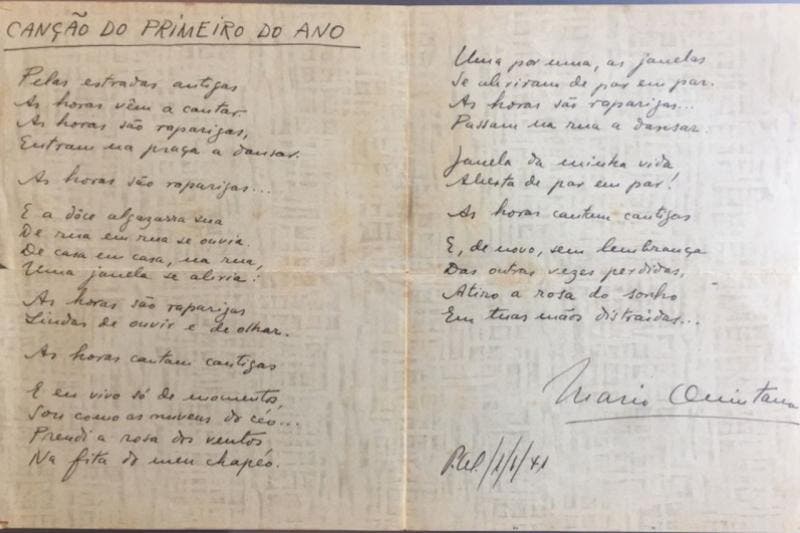 CANÇÃO DO PRIMEIRO DO ANO
Pelas estradas antigas
As horas vêm a cantar.
As horas são raparigas,
Entram na praça a dansar.
As horas são raparigas...
E a dôce algazarra sua
De rua em rua se ouvia.
De casa em casa, na rua,
Uma janela se abria.
As horas são raparigas
Lindas de ouvir e de olhar.
As horas cantam cantigas
E eu vivo só de momentos,
Sou como as nuvens do céo...
Prendi a rosa dos ventos
Na fita do meu chapéo.
Uma por uma, as janelas
Se abriram de par em par.
As horas são raparigas...
Passam na rua a dansar.
Janela da minha vida
Aberta de par em par!
As horas cantam cantigas
E, de novo, sem lembrança
Das outras vezes perdidas,
Atiro a rosa do sonho
Em tuas mãos distraidas...
Mario Quintana